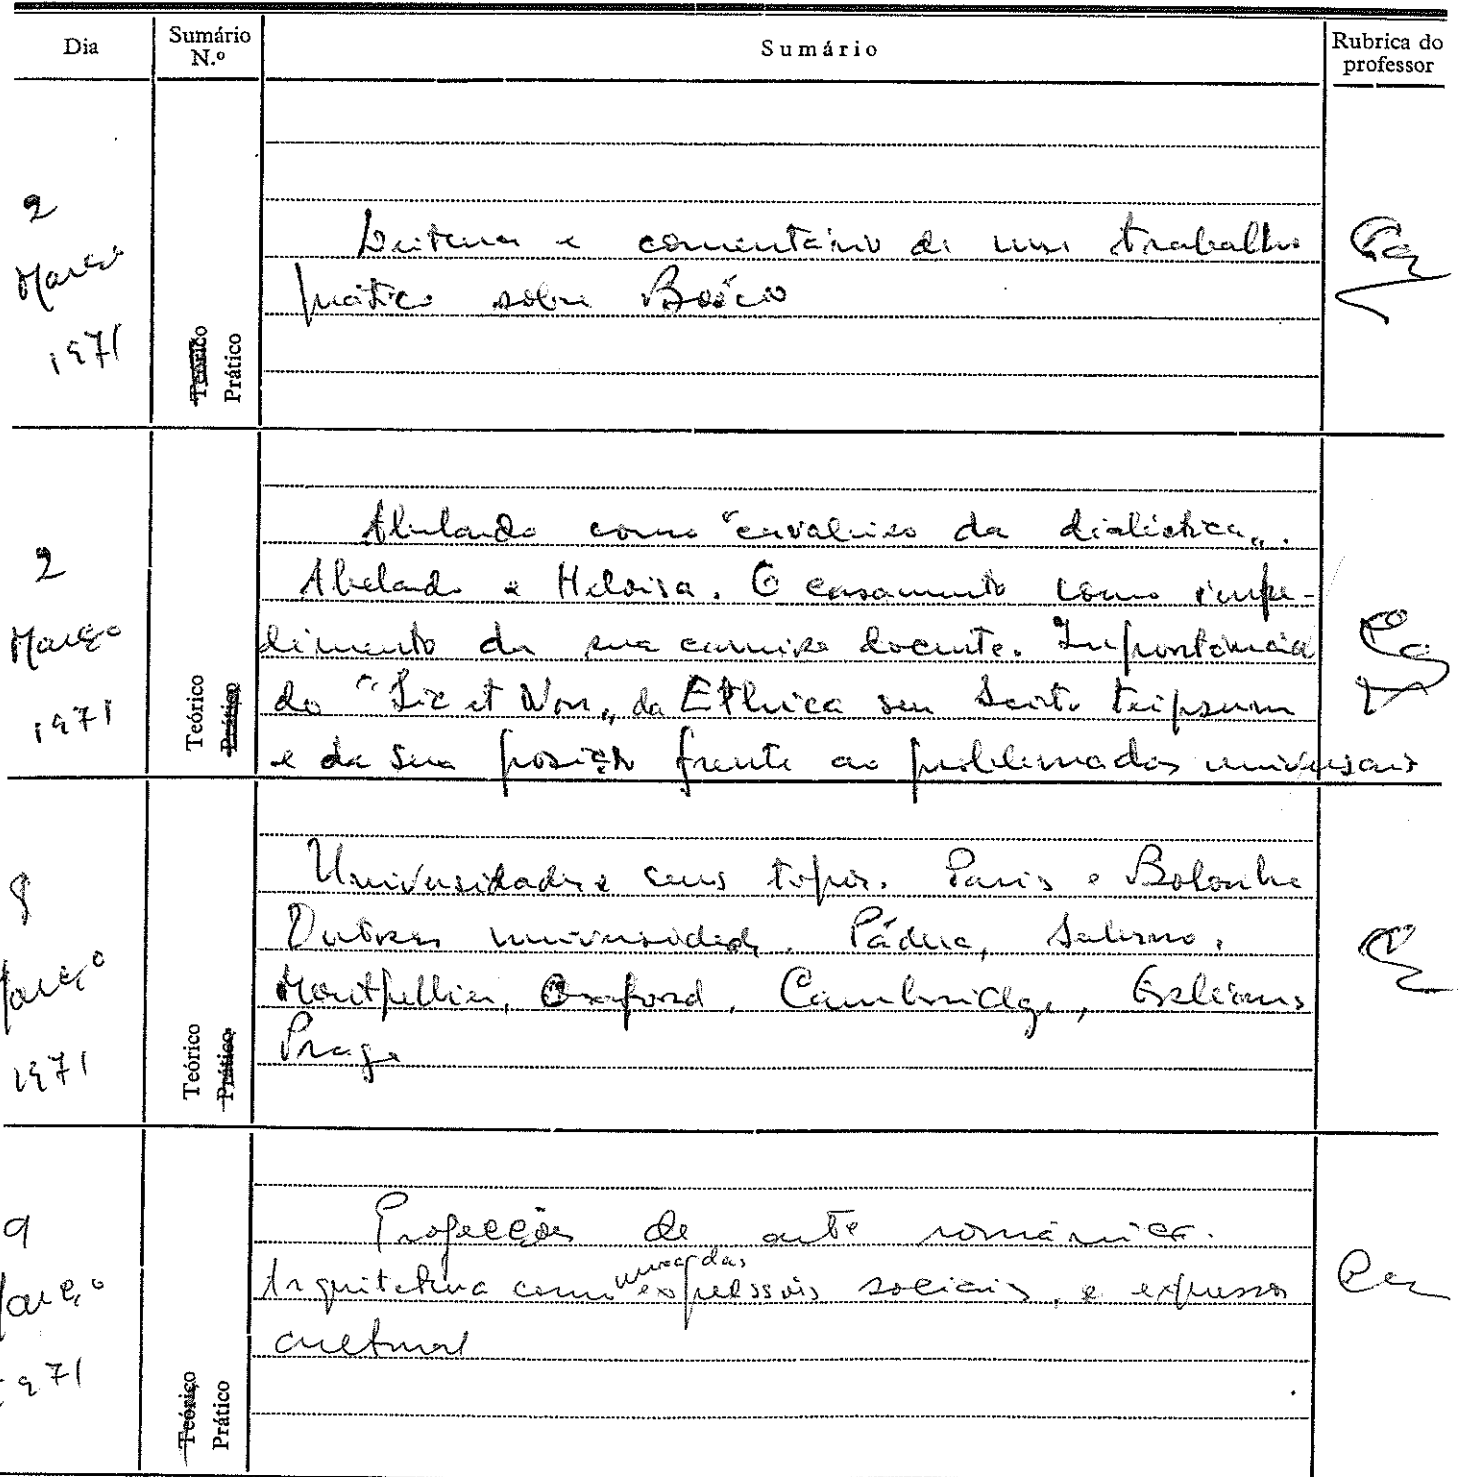 Dia
Sumário
N.º
Sumário
Rubrica do
professor
2
Março
1971
Teórico
Prático
Leitura e comentário de um trabalho
prático sobre Boécio
2
Março
1971
Teórico
Prático
Abelardo como "cavaleiro da dialéctica„.
Abelardo e Heloisa. O casamento como impe-
dimento da sua carreira docente. Importância
do "Sic et Non„ da Ethica seu Scito teipsum
e da sua posição frente ao problema dos universais
8
Março
1971
Teórico
Prático
Universidades e seus tipos. Paris e Bolonha
Outras universidades. Pádua, Salerno,
Montpellier, Oxaford, Cambridge,
Praga
9
Março
1971
Teórico
Prático
Projecções de arte românica.
Arquitetura como uma das expressões sociais, e expressão
cultural